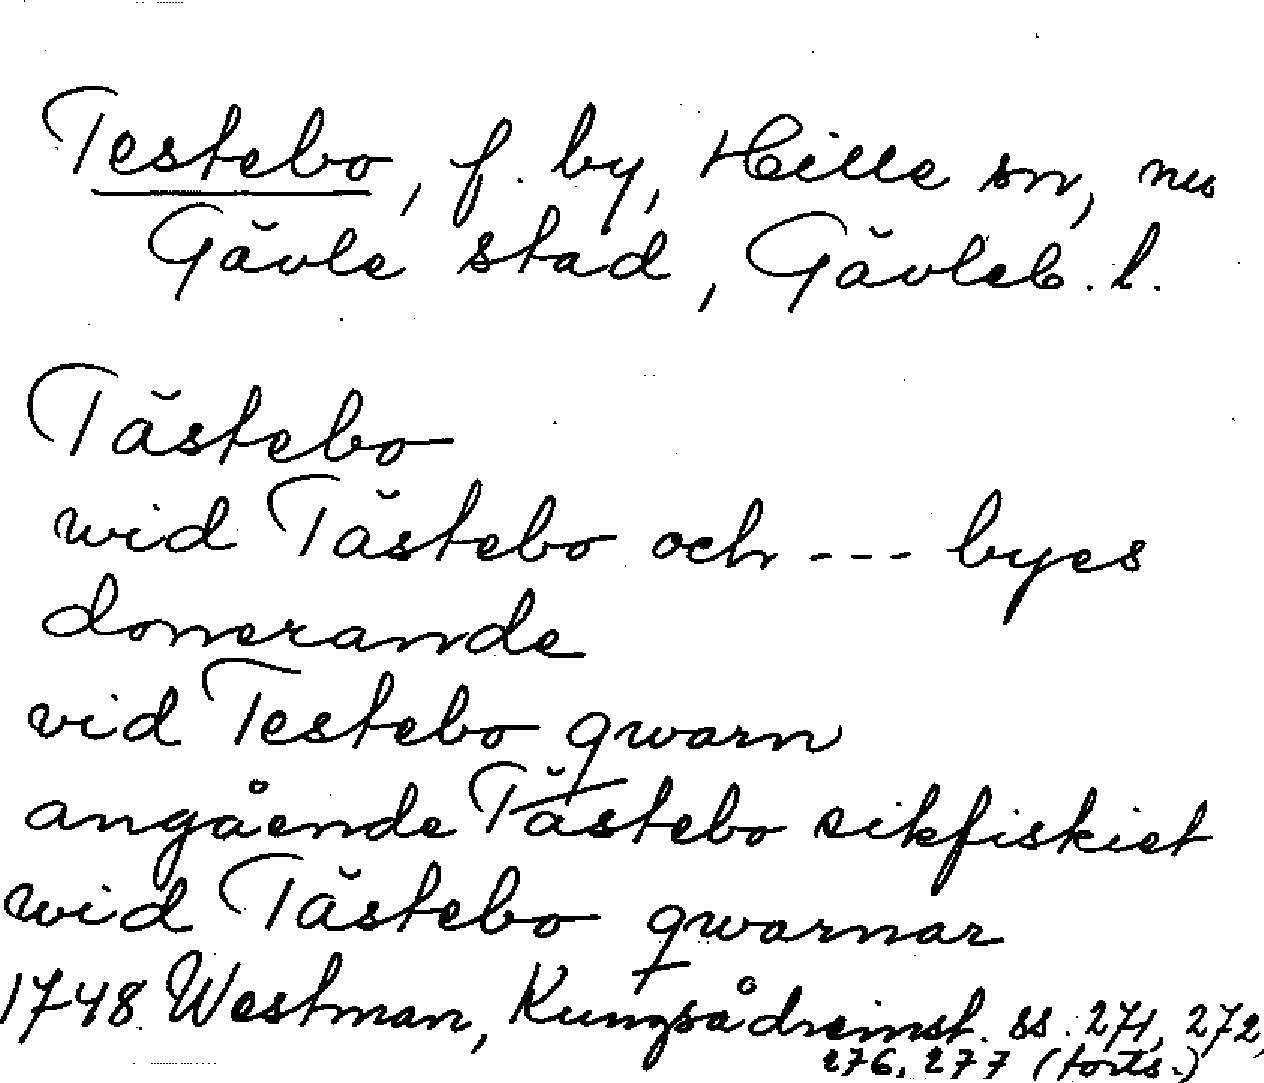 Testebo, f. by, Hille sn, nu
Gävle stad, Gävleb. l.
Tästebo
wid Tästebo och --- byes
donerande
vid Testebo qwarn
angående Tästebo sikfiskiet
wid Tästebo qwarnar
1748 Westman, Kungsådreinst. ss. 271, 272,
276, 277 (forts.)